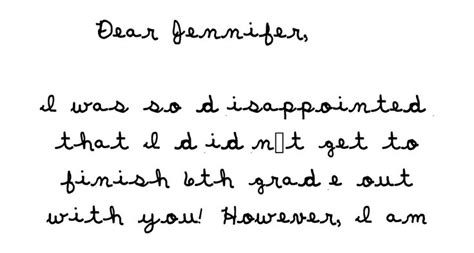 Dear Jennifer,
I was so disappointed
that I didn▯t get to
finish 6th grade out
with you! However, I am